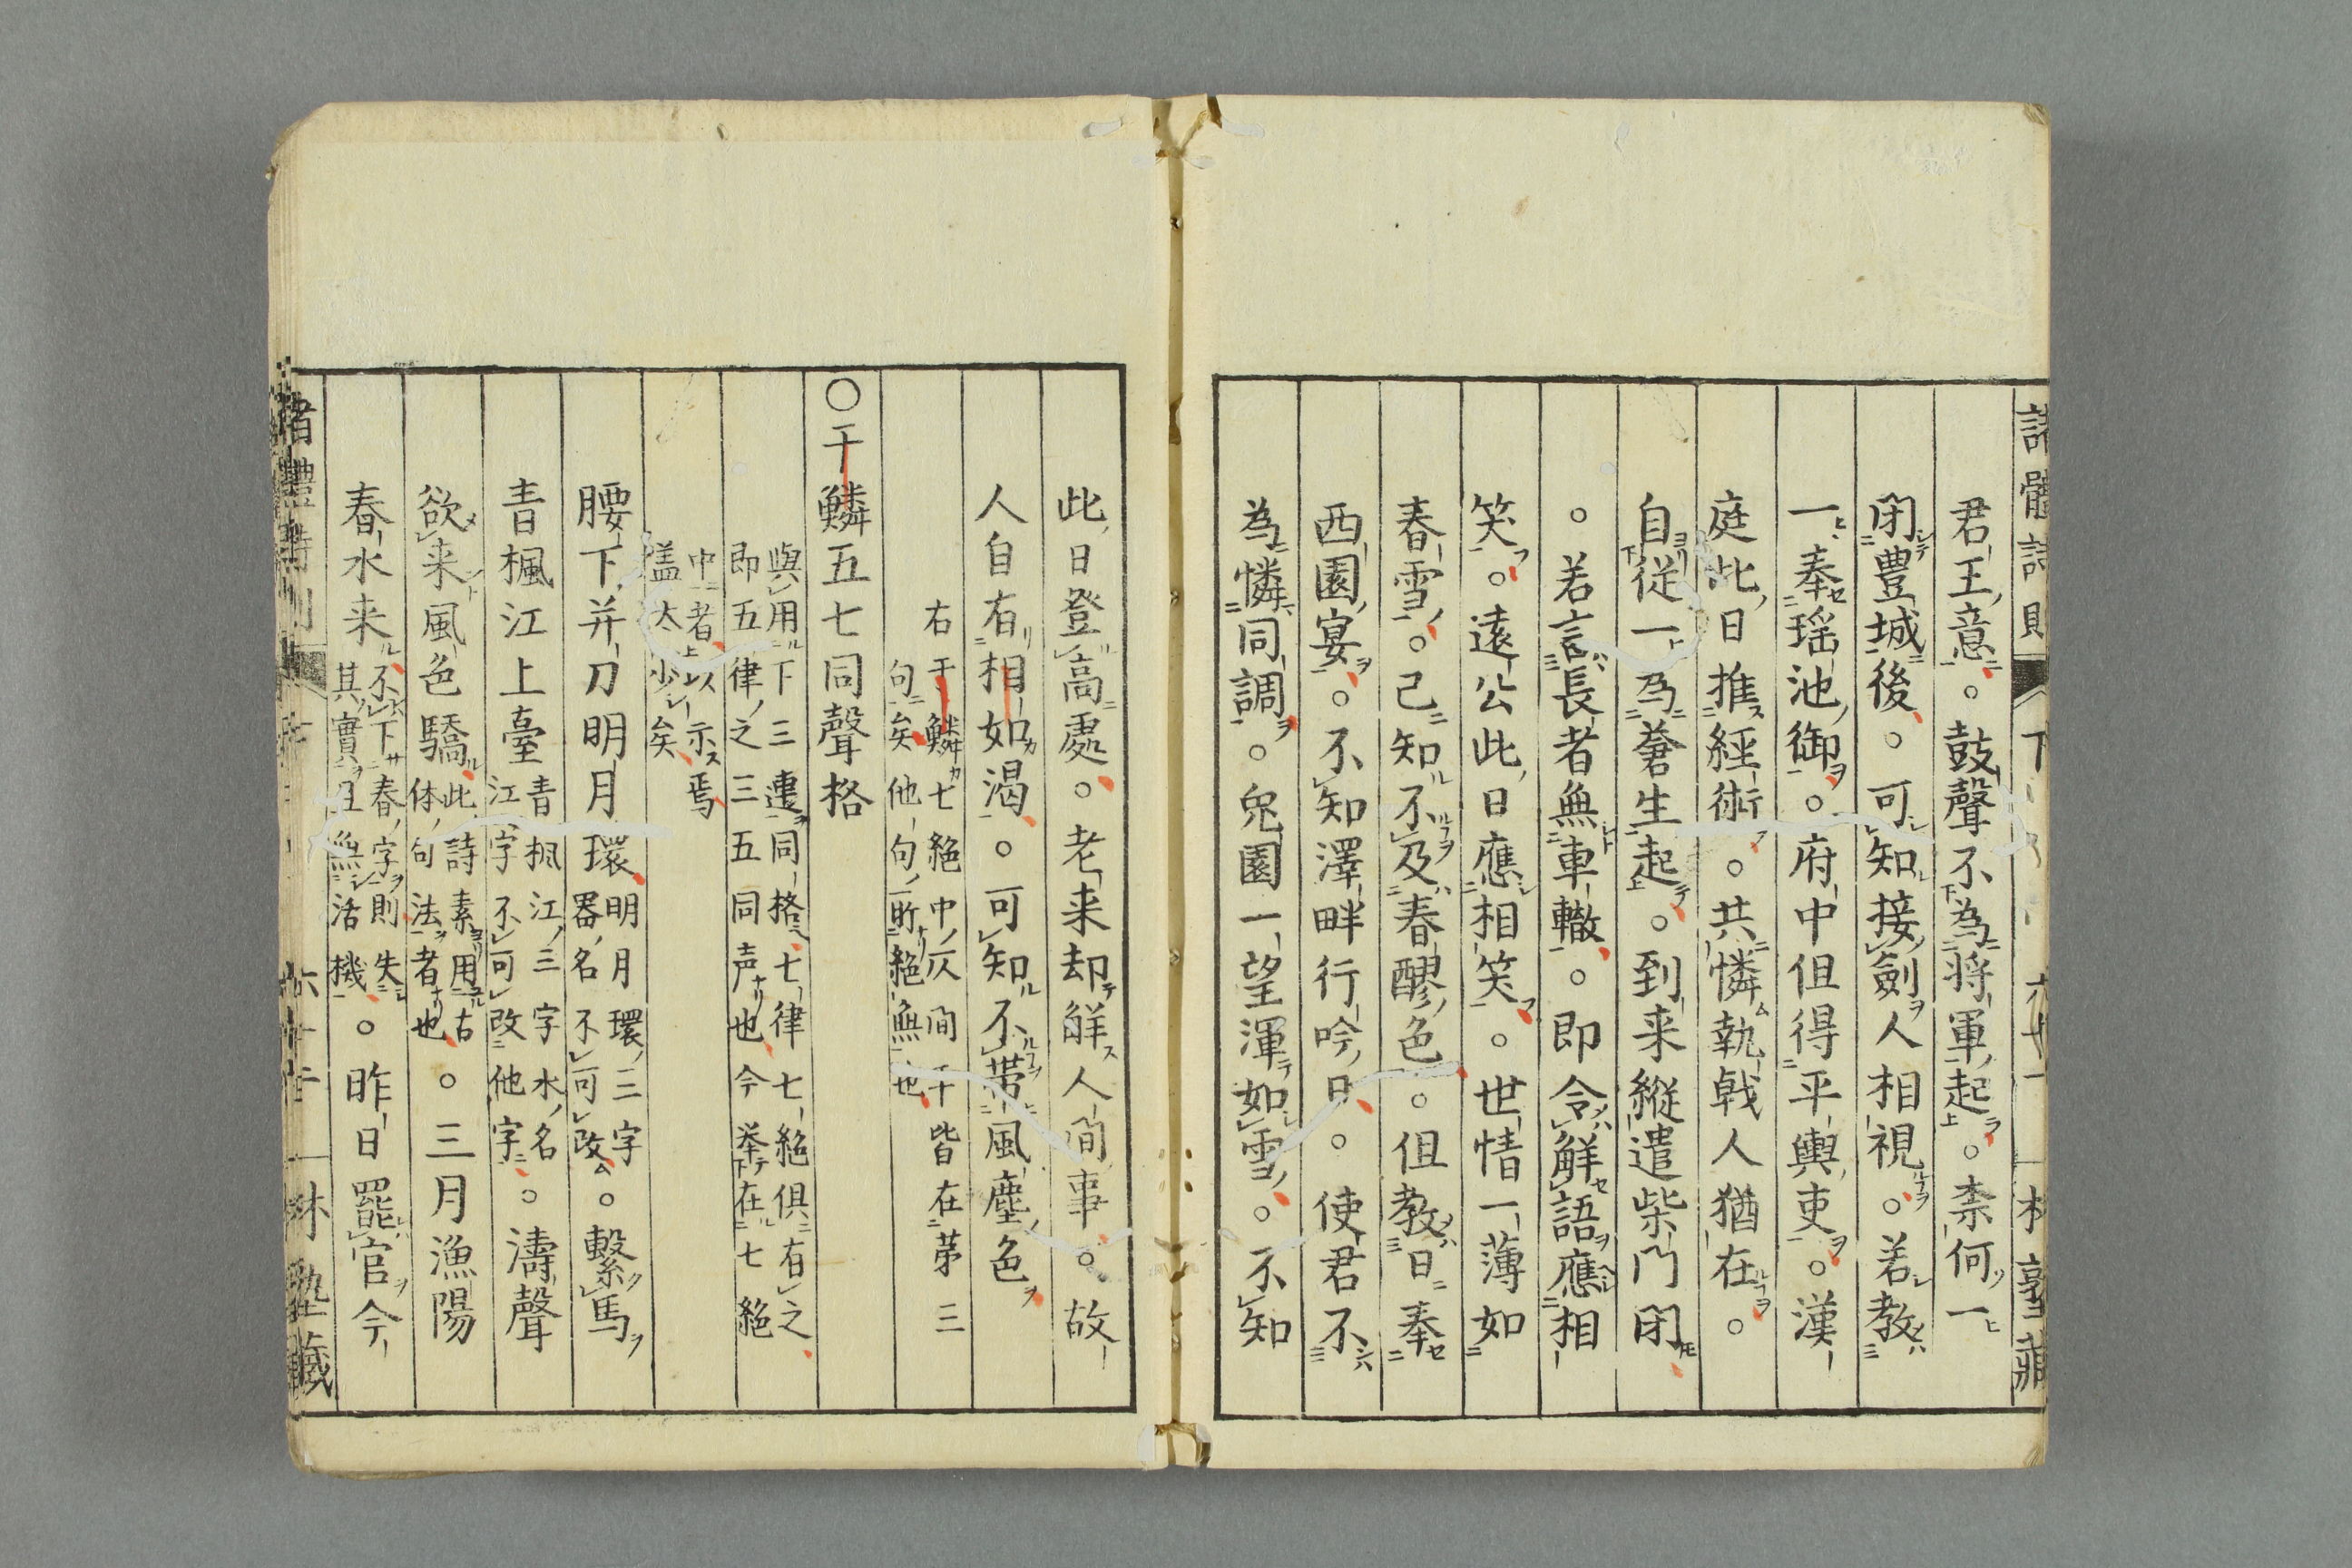 君王意。鼓聲不為将軍起。柰何一
閉豊城後。可知接劍人相視。若教
一奉瑶池御。府中但得平輿吏。漢
庭此日推經術。共憐執戟人猶在。
自従一為蒼生起。到来縦遣柴門閉
。若言長者無車轍。即令觧語應相
笑。遠公此日應相笑。世情一薄如
春雪。已知不及春醪色。但教日奉
西園宴。不知澤畔行吟日。使君不
為憐同調。兎園一望渾如雪。不知
此日登高處。老来却觧人間事。故
人自有相如渴。可知不帯風塵色
右于鱗七絶中仄間干皆在第三
句矣他句断絶無也
○于鱗五七同聲格
與用下三連同格七律七絶倶有之
即五律之三五同声也今举在七絶
中者以示焉
盖太少矣
腰下并刀明月環明月環三字
器名不可改。繋馬
青楓江上臺青楓江三字水名
江字不可改他字。濤聲
欲来風色驕此詩素用古
体句法者也。三月漁陽
春水来不下春字則失
其實且無活機。昨日罷官今